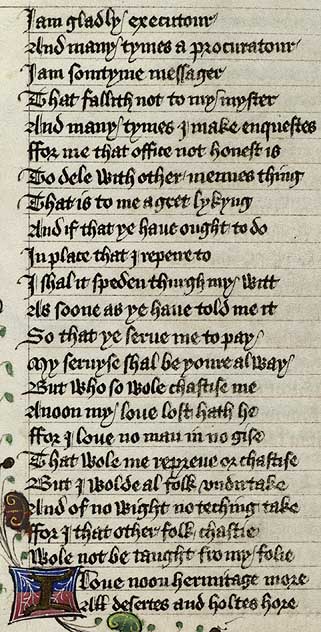 I am gladly executour
And many tymes a procuratour
I am somtyme messager
That fallith not to my myster
And many tymes I make enquestes
ffor me that office not honest is
To dele with other mennes thing
That is to me a gret lykyng
And if that ye have ought to do
In place that I repeire to
I shal it speden thurgh my witt
As soone as ye have told me it
So that ye serve me to pay
My servyse shal be youre alway
But who so wole chastise me
Anoon my love lost hath he
ffor I love no man in no gise
That wole me repreve or chastise
But I wolde al folk undirtake
And of no wight no teching take
ffor I that other folk chastie
Wole not be taught fro my folie
I love noon hermitage more
All desertes and holtes hore